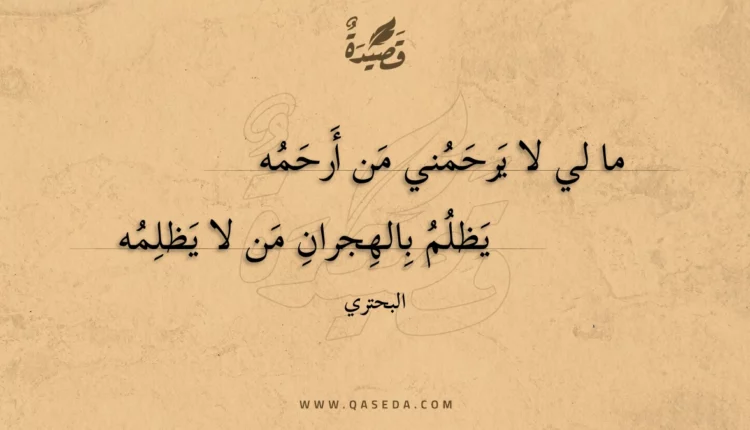 قَصِيْدَةٌ
ما لي لا يَرحَمُني مَن أَرحَمُه
يَظلُمُ بِالهِجرانِ مَن لا يَظلِمُه
البحتري
WWW.QASEDA.COM